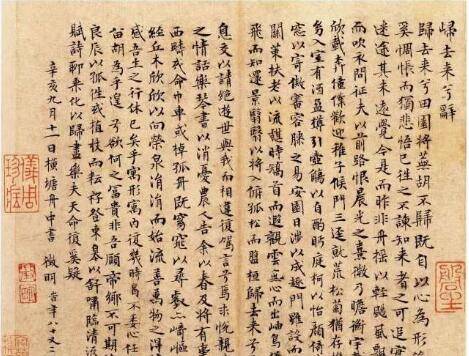 歸去来兮辭
歸去来兮田園將蕪胡不歸既自以心為形
奚惆悵而獨悲悟已往之不諫知来者之可追
迷途其未遠覺今是而昨非舟搖以輕颺風飄
而吹衣問征夫以前路恨晨光之熹微乃瞻衡宇
欣載奔僮僕歡迎稚子候門三逕就荒松菊猶存
幼入室有酒盈罇引壺觴以自酌眄庭柯以怡顏
窓以寄傲審容膝之易安園日涉以成趣門雖設而
關策扶老以流憩時矯首而遐觀雲無心而出岫鳥
飛而知還景翳翳以將入撫孤松而盤桓歸去来兮
息交以絕遊世與我而相違復駕言兮焉求悅親
之情話樂琴書以消憂農人告余以春及將有事
西疇或命巾車或棹孤舟既窈窕以尋壑亦崎嶇
經丘木欣欣以向榮泉涓涓而始流善萬物之得
感吾生之行休已矣乎寓形寓內復幾時曷不委心任
留胡為乎遑遑兮欲何之富貴非吾願帝鄉不可期
良辰以孤往或植杖而耘耔登東皋以舒嘯臨清流
賦詩聊乘化以歸盡樂夫天命復奚疑
辛亥九月十一日橫塘舟中書 徵明 時年八十又二